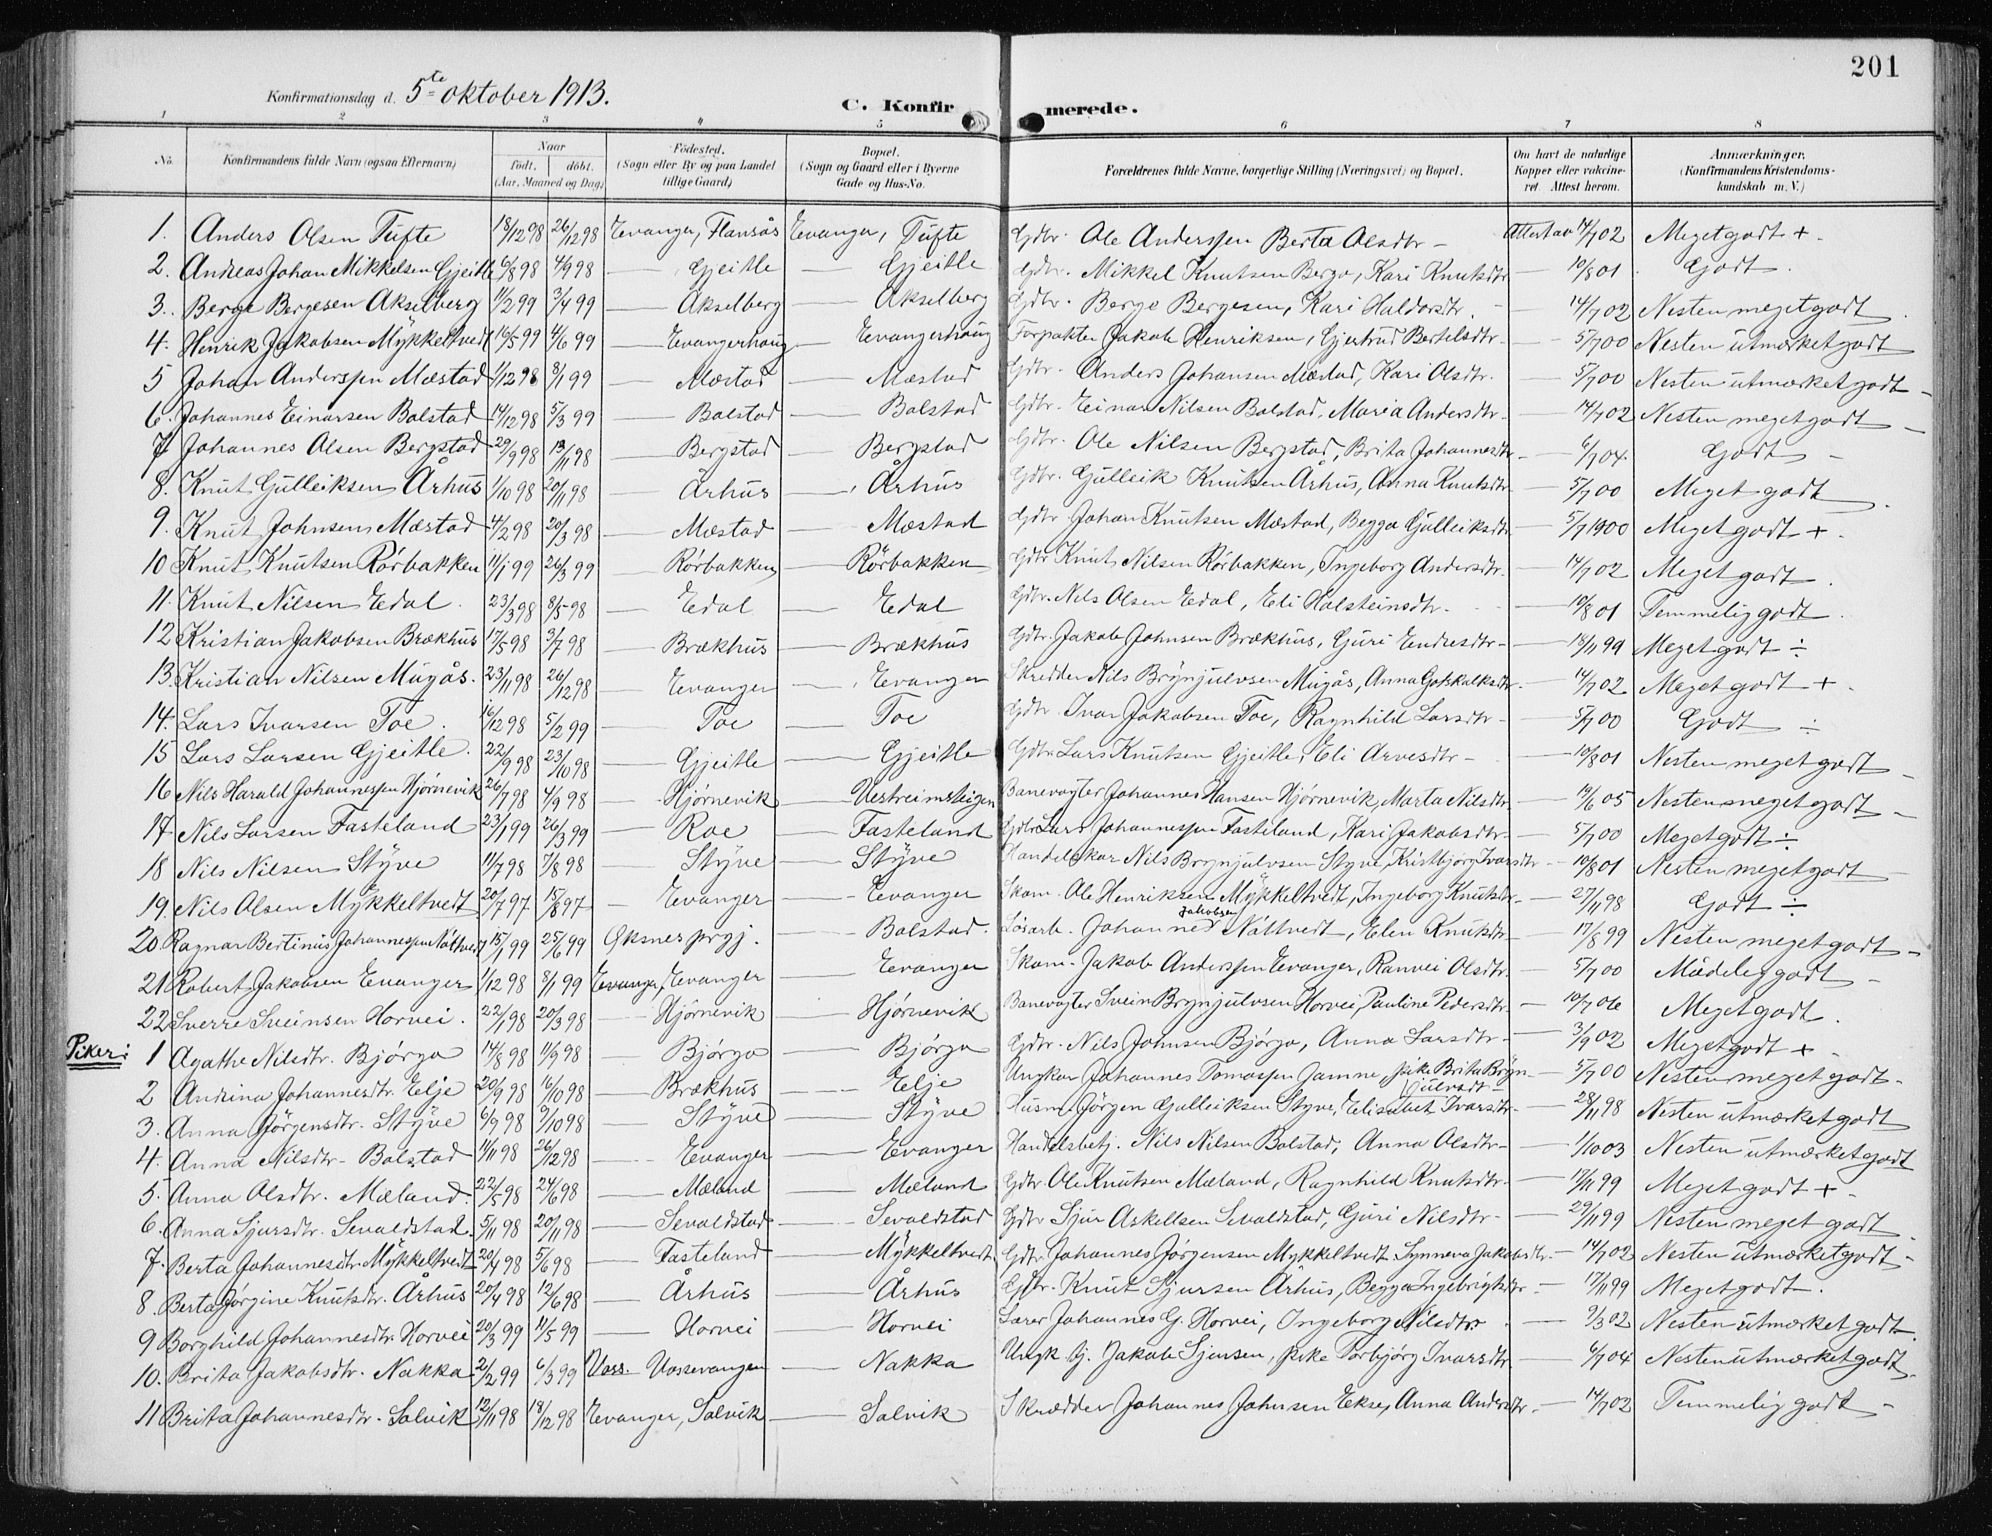 201
Konfirmationsdag d. 5te oktober 1913.
C. Konfirmerede.
1 2 3 4 5 6 7 8
No. Konfirmandens fulde Navn (ogsaa Efternavn) Naar født. døbt. (Aar, Maaned og Dag) Fødested. (Sogn eller By og paa Landet tillige Gaard) Bopæl. (Sogn og Gaard eller i Byerne Gade og Hus-No. Forældrenes fulde Navne, borgerlige Stilling (Næringsvei) og Bopæl. Om havt de naturlige Kopper eller vakcineret. Attest herom. Anmærkninger. (Konfirmandens Kristendomskundskab m. V.)
1. Anders Olsen Tufte 18/12 98 26/12 98 Evanger, Flansås Evanger, Tufte Gdbr. Ole Anderssen Berta Olsdtr - Attest av 14/7 02 Meget godt +
2. Andreas Johan Mikkelsen Gjeitle 6/8 98 4/9 98 — Gjeitle — Gjeitle Gdbr. Mikkel Knutsen Berge, Kari Knutsdtr — 10/8 01 Godt
3. Berge Bergesen Akselberg 11/2 99 3/4 99 — Akselberg — Akselberg Gdbr. Berge Bergesen, Kari Haldorsdtr. — 14/7 02 Nesten meget godt
4. Henrik Jakobsen Mykkeltvedt 16/5 99 4/6 99 — Evangerhaug — Evangerhaug Forpakter Jakob Henriksen, Gjertrud Bertelsdtr. — 5/7 00 Nesten utmærket godt
5 Johan Anderssen Mæstad 1/12 98 8/1 99 — Mæstad — Mæstad Gdbr. Anders Johansen Mæstad, Kari Olsdtr. — 5/7 00 Nesten utmærket godt
6. Johannes Einarsen Bolstad 14/12 98 5/3 99 — Bolstad — Bolstad Gdbr. Einar Nilsen Bolstad, Maria Andersdtr. — 14/7 02 Nesten meget godt
7 Johannes Olsen Bergstad 29/9 98 13/11 98 — Bergstad — Bergstad Gdbr. Ole Nilsen Bergstad, Brita Johannesdtr — 6/7 04 Godt
8. Knut Gulleiksen Århus 1/10 98 20/11 98 — Århus — Århus Gdbr. Gulleik Knutsen Århus, Anna Knutsdtr — 5/7 00 Meget godt
9. Knut Johnsen Mæstad 4/2 98 20/3 98 — Mæstad — Mæstad Gdbr Johan Knutsen Mæstad, Begga Gulleiksdtr — 5/7 1900 Meget godt +
10 Knut Knutsen Rörbakken 11/1 99 26/3 99 — Rörbakken — Rörbakken Gdbr Knut Nilsen Rörbakken, Ingeborg Andersdtr. — 14/7 02 Meget godt
11. Knut Nilsen Edal 23/3 98 8/5 98 — Edal — Edal Gdbr. Nils Olsen Edal, Eli Holsteinsdtr. — 10/8 01 Temmelig godt
12 Kristian Jakobsen Brækhus 17/5 98 3/7 98 — Brækhus — Brækhus Gdbr. Jakob Johnsen Brækhus, Guri Endresdtr — 18/11 99 Meget godt ÷
13. Kristian Nilsen Mugås. 23/11 98 26/12 98 — Evanger — Evanger Skredder Nils Brynjulvsen Mugås, Anna Gotskalksdtr. — 14/7 02 Meget godt +
14. Lars Ivarsen Toe. 16/12 98 5/2 99 — Toe — Toe Gdbr. Ivar Jakobsen Toe, Ragnhild Larsdtr — 5/7 00 Godt ÷
15 Lars Larsen Gjeitle. 22/9 98 23/10 98 — Gjeitle — Gjeitle Gdbr. Lars Knutsen Gjeitle, Eli Arvesdtr — 10/8 01 Nesten meget godt
16 Nils Harald Johannessen Hjørnevik 26/7 98 4/9 98 — Hjørnevik — Vestreimsteigen Banevogter Johannes Hansen Hjørnevik, Marta Nilsdtr — 19/6 05 Nesten meget godt
17. Nils Larsen Fasteland 23/1 99 26/3 99 — Roe — Fasteland Gdbr Lars Johannessen Fasteland, Kari Jakobsdtr. — 5/7 00 Meget godt ÷
18 Nils Nilsen Styve 11/7 98 7/8 98 — Styve — Styve Handelskar Nils Brynjulvsen Styve, Kristbjørg Ivarsdtr — 10/8 01 Nesten meget godt
19. Nils Olsen Mykkeltvedt 20/7 97 15/8 97 — Evanger — Evanger Skom. Ole Henriksen Mykkeltvedt, Ingeborg Knutsdtr. — 27/11 98 Godt ÷
20. Ragnar Bertinius Johannessen Nåttvedt 15/1 99 25/6 99 Øksnes prgj. — Bolstad. Løsarb. Johannes Jakobsen Nåttvedt, Elen Knutsdtr — 17/8 99 Nesten meget godt
21 Robert Jakobsen Evanger 1/12 98 8/1 99 Evanger, Evanger Evanger Skom. Jakob Anderssen Evanger, Ranvei Olsdtr. — 5/7 00 Mådelig godt
22 Sverre Sveinsen Horvei. 22/1 98 20/3 98 — Hjørnevik — Hjørnevik Banevogter Svein Brynjulvsen Horvei, Pauline Pedersdtr — 10/7 06 Meget godt
Piker:
1 Agathe Nilsdtr. Bjørgo 14/8 98 11/9 98 — Bjørgo — Bjørgo Gdbr. Nils Johnsen Bjørgo, Anna Larsdtr — 3/9 02 Meget godt +
2 Andrina Johannesdtr. Eelje 20/9 98 16/10 98 — Brækhus — Eelje Ungkar Johannes Tomassen Jamne, pike Brita Brynjulvsdt — 5/7 00 Nesten meget godt
3. Anna Jörgensdtr. Styve 6/9 98 9/10 98 — Styve — Styve Husm. Jörgen Gulleiksen Styve, Elisabet Ivarsdtr. — 28/11 98 Nesten utmærket godt
4. Anna Nilsdtr. Bolstad 11/11 98 26/12 98 — Evanger — Evanger Handelsbetj. Nils Nilsen Bolstad, Anna Olsdtr — 1/10 03 Nesten utmærket godt
5. Anna Olsdtr. Mæland. 22/5 98 24/6 98 — Mæland — Mæland Gdbr Ole Knutsen Mæland, Ragnhild Knutsdtr — 19/11 99 Meget godt +
6. Anna Sjursdtr. Sevaldstad 5/11 98 20/11 98 — Sevaldstad — Sevaldstad Gdbr Sjur Askellsen Sevaldstad, Guri Nilsdtr — 29/11 99 Nesten meget godt
7. Berta Johannesdtr. Mykkeltvedt 20/4 98 5/6 98 — Fasteland — Mykkeltvedt Gdbr Johannes Jørgensen Mykkeltvedt. Synneva Jakobsdtr. — 14/7 02 Nesten utmærket godt
8 Berta Jørgine Knutsdtr. Århus 20/4 98 12/6 98 — Århus — Århus Gdbr. Knut Sjursen Århus, Begga Ingebrigtsdtr — 17/11 99 Meget godt.
9 Borghild Johannesdtr. Horvei 20/3 99 11/5 99 — Horvei — Horvei Lærer Johannes G. Horvei, Ingeborg Nilsdtr. 9/3 02 Nesten utmærket godt
10. Brita Jakobsdtr. Nakka 2/2 99 6/3 99 Voss. Vossevangen — Nakka Ungk bj. Jakob Sjursen, pike Torbjörg Ivarsdtr — 6/7 04 Nesten utmærket godt.
11 Brita Johannesdtr. Solvik 12/11 98 18/12 98 Evanger, Solvik — Solvik Skrædder Johannes Johnsen Ekse, Anna Andersdtr. — 14/7 02 Temmelig godt